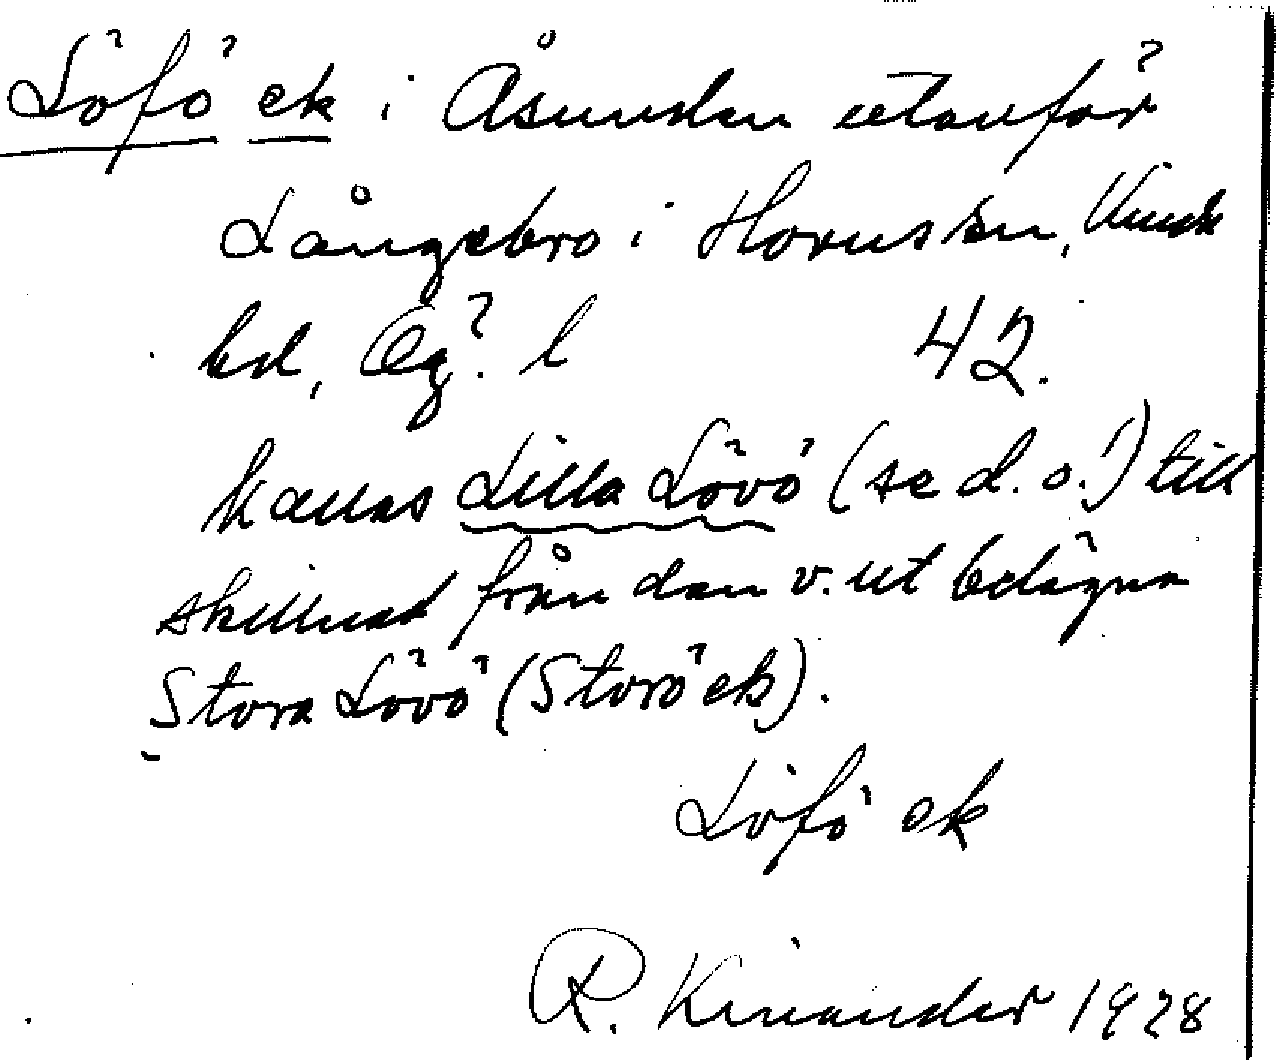 Löfö ek i Åsunden utanför
Långebro i Horns sn, Kinds
hd, Ög. l 42.
kallas Lilla Lövö (se d. o.!) till
skillnad från den v. ut belägna
Stora Lövö (Storö ek).
Löfö ek
R. Kinander 1928